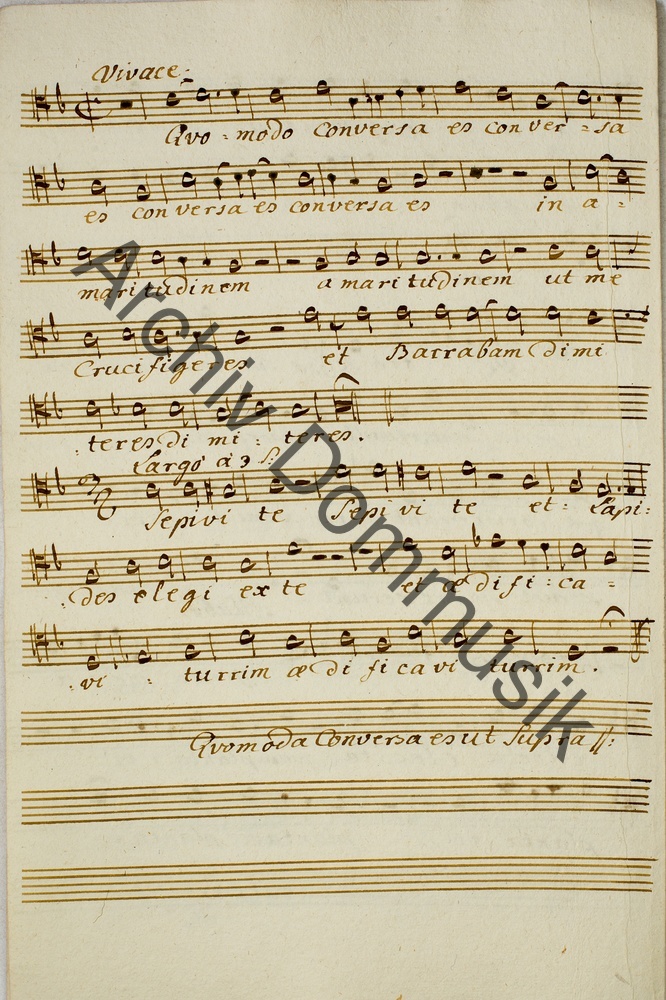 Vivace:
Qvo - modo conversa es con ver - sa
es conversa es conversa es in a -
maritudinem amaritudinem ut me
Crucifigeres et Barrabam dimi
teres di mi - teres.
Largo à 3
Sepivi te Sepi vi te et - Lapi:
des elegi ex te et ædifi: ca -
vi - turrim ædificavi turrim.
Qvomoda Conversa es ut Supra //:
Archiv Dommusik